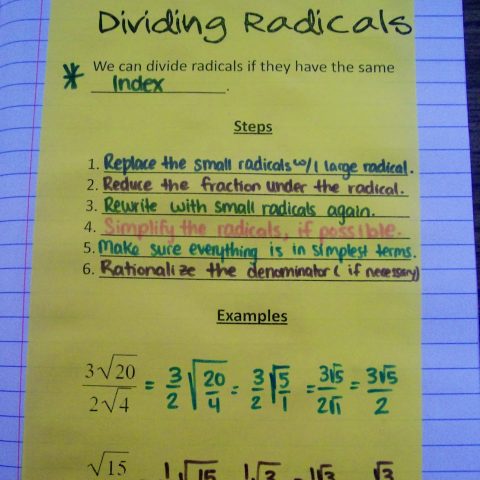 Dividing Radicals
We can divide radicals if they have the same
* Index.
Steps
1. Replace the small radicals w/1 large radical.
2. Reduce the fraction under the radical.
3. Rewrite with small radicals again.
4. Simplify the radicals, if possible.
5. Make sure everything is in simplest terms.
6. Rationalize the denominator (if necessary)
Examples
3√20/2√4 = 3/2 √20/4 = 3/2 √5/1 = 3√5/2√1 = 3√5/2
√15 = 1√15 1√3 = 1√3 √3